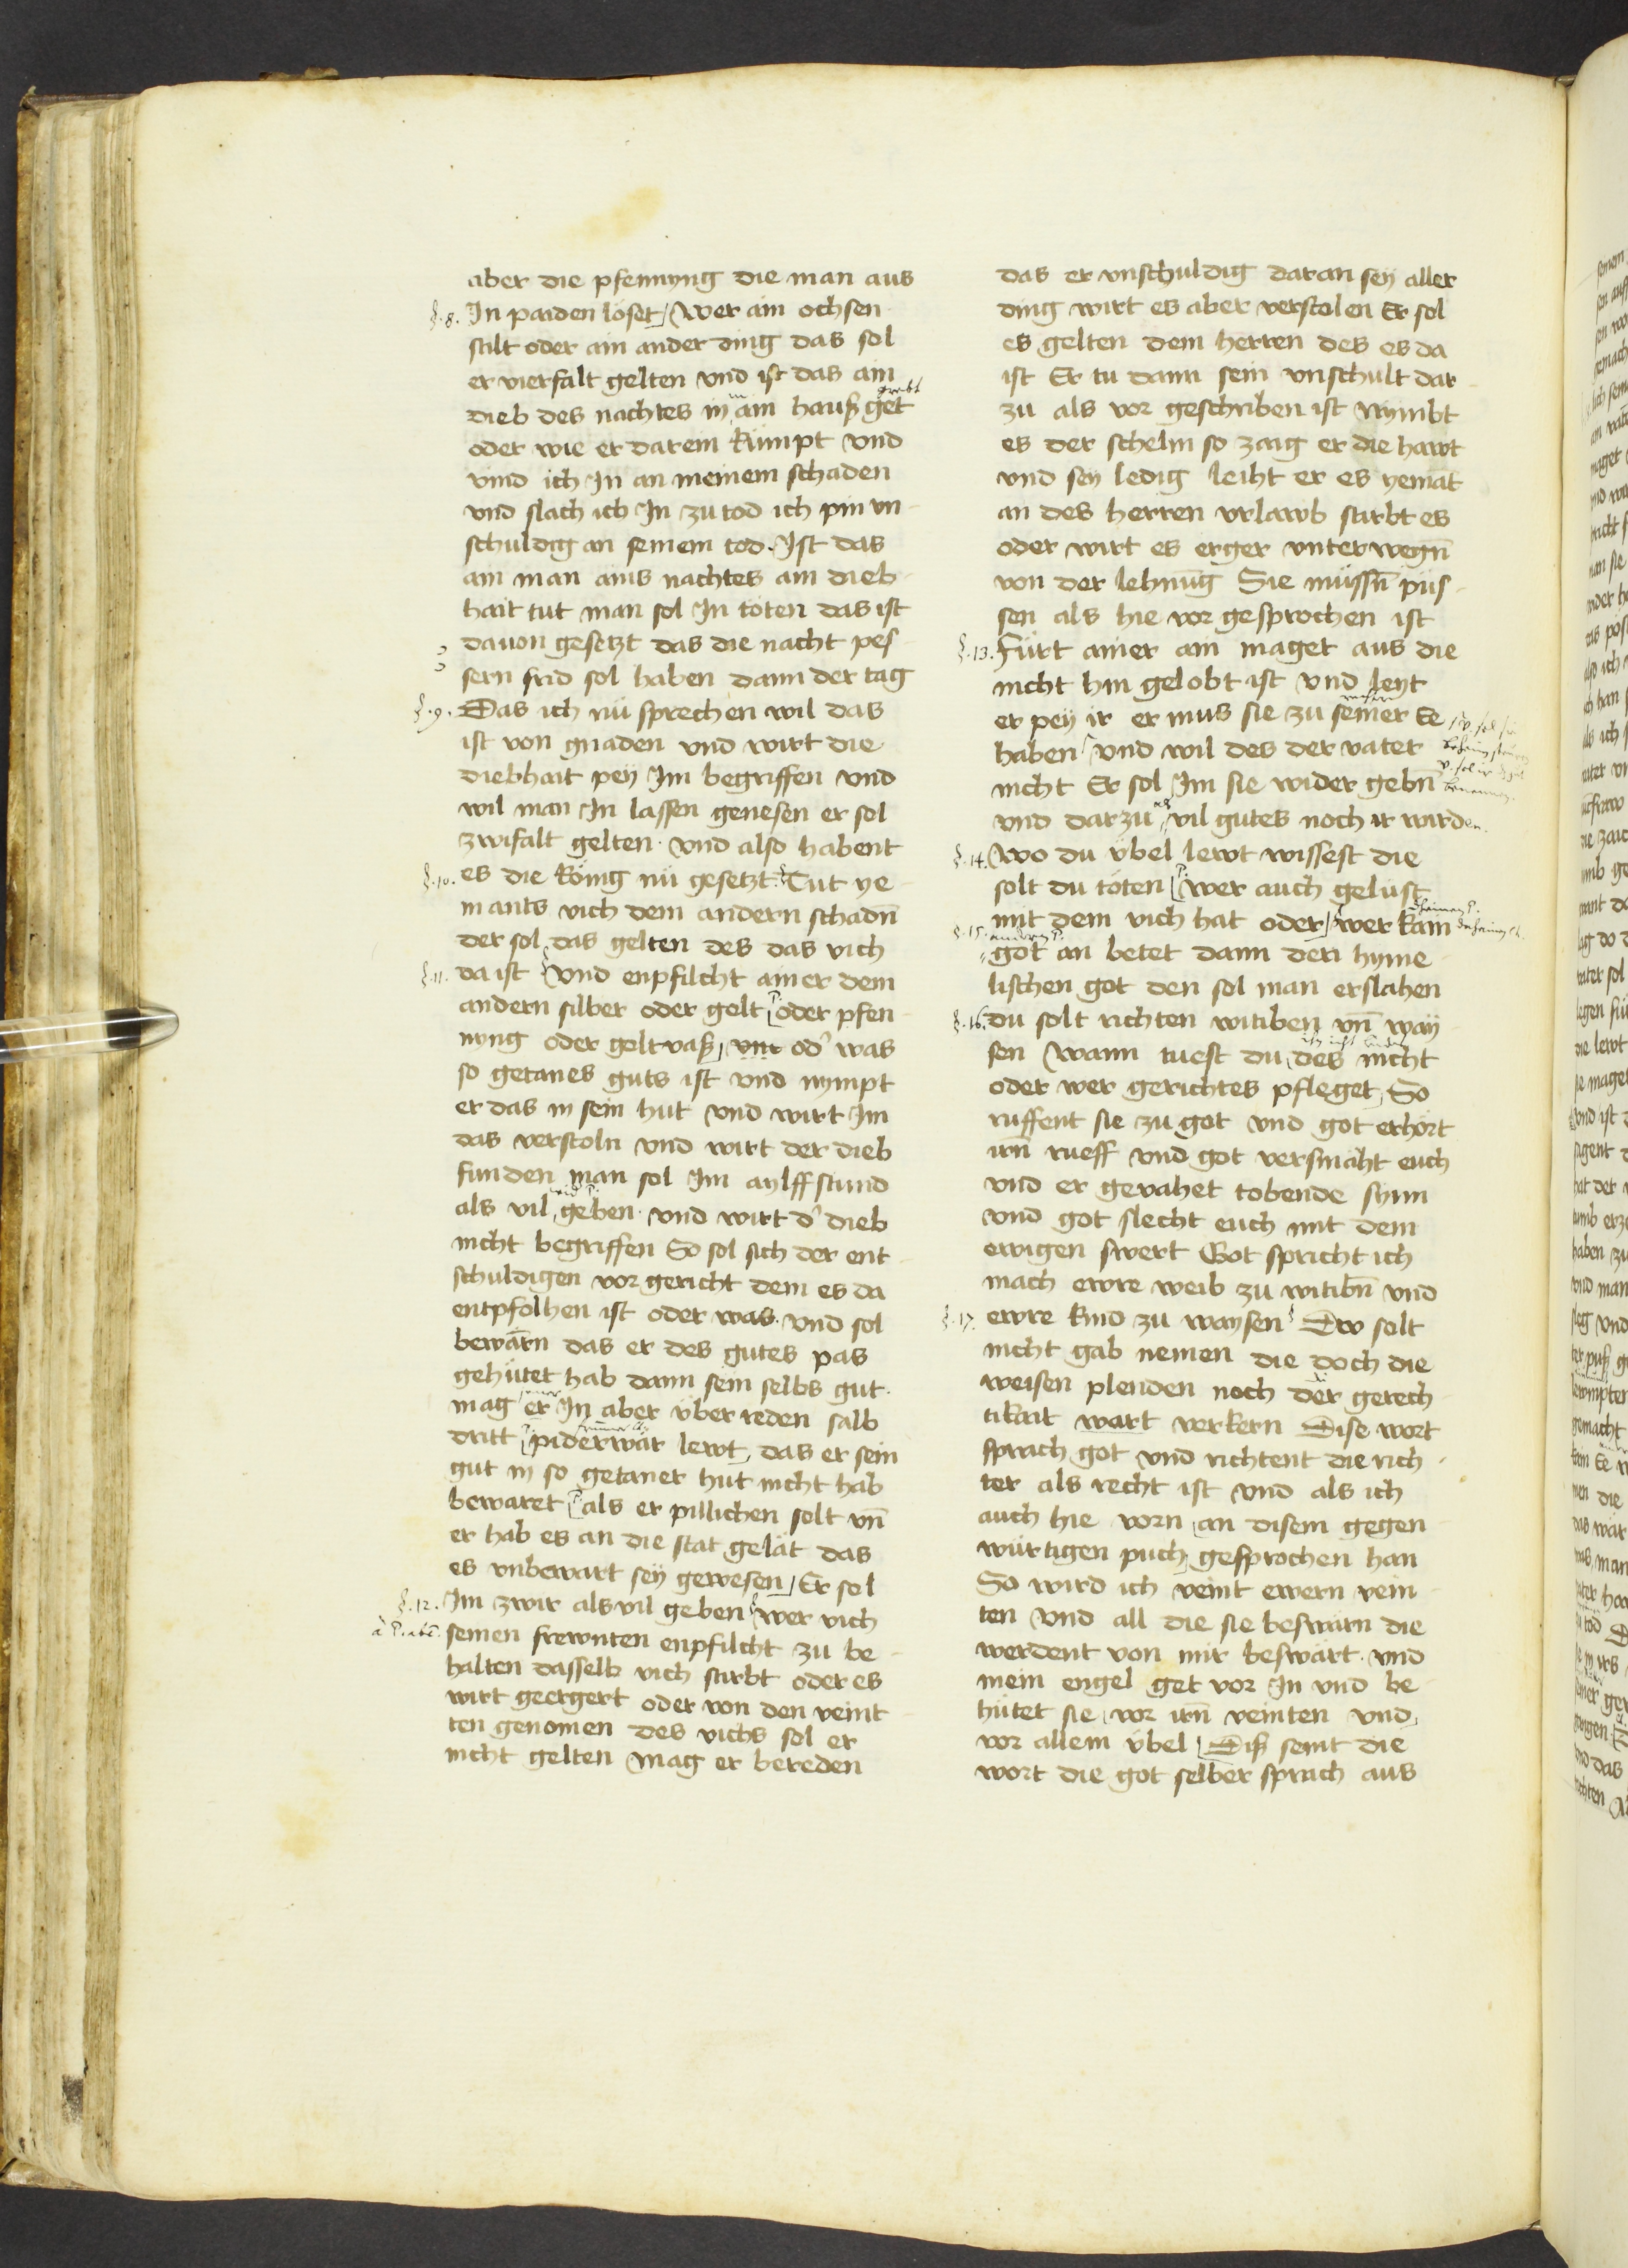 aber die pfennyng die man aus
§.8. In paiden löset, Wer ain ochsen
stilt oder ain ander ding das sol
er vierfalt gelten vnd ist das ain
dieb des nachtes in ain hauß get
oder wie er darein kümpt vnd
vind ich In an meinem schaden
vnd slach ich In zu tod ich pin vn
schuldig an seinem tod. Ist das
ain man ains nachtes ain dieb
hait tut man sol In töten das ist
dauon gesetzt das die nacht pes
sern frid sol haben dann der tag
§.9. Das ich nü sprechen wil das
ist von gnaden vnd wirt die
diebhait pey Im begriffen vnd
wil man In lassen genesen er sol
zwifalt gelten. vnd also habent
§.10. es die König nü gesetzt. Tut ye
mants vich dem andern schadn̄
der sol das gelten des das vich
§.11. da ist vnd enpfilcht ainer dem
andern silber oder golt oder pfen
nyng oder goltvaß, vnr od' was
so getanes guts ist vnd nympt
er das in sein hut vnd wirt Im
das verstoln vnd wirt der dieb
funden man sol Im aylff stund
als vil geben. vnd wirt d' dieb
nicht begriffen So sol sich der ent
schuldigen vor gericht dem es da
entpfolhen ist oder was. vnd sol
bewärn das er des gutes pas
gehütet hab dann sein selbs gut.
mag er In aber über reden salb
dritt piderwär lewt, das er sein
gut in so getaner hut nicht hab
bewaret als er pillichen solt vn̄
er hab es an die stat gelät das
es vnbewart sey gewesen, Er sol
§.12. Im zwir als vil geben wer vich
seinen frewnten enpfilcht zu be
halten dasselb vich stirbt oder es
wirt geergert oder von den veint
ten genomen des vichs sol er
nicht gelten mag er bereden
das er vnschuldig daran sey aller
ding wirt es aber verstolen Er sol
es gelten dem herren des es da
ist Er tu dann sein vnschult dar
zu als vor geschriben ist Nymbt
es der schelm so zaig er die hawt
vnd sey ledig leiht er es yemāt
an des herren vrlawb stirbt es
oder wirt es erger vnterwegn̄
von der lehnūg Sie müssn̄ püs
sen als hie vor gesprochen ist
§.13. Fürt ainer ain maget aus die
nicht hin gelobt ist vnd leyt
er pey ir er mus sie zu seiner Ee
haben vnd wil des der vater
nicht Er sol Im sie wider gebn̄
vnd darzu als vil gutes noch ir wirden.
§.14. Wo du übel lewt wissest die
solt du töten wer auch gelust
mit dem vich hat oder wer kain
§.15. got an betet dann den hyme
lischen got den sol man erslahen
§.16. du solt richten witiben vn̄ way
sen Wann tuest du des nicht
oder wer gerichtes pfleget, So
ruffent sie zu got vnd got erhört
irn̄ rueff vnd got versmäht euch
vnd er gevahet tobende synn
vnd got slecht euch mit dem
ewigen swert Got spricht ich
mach ewre weib zu witibn̄ vnd
§.17. ewre kind zu waysen Dw solt
nicht gab nemen die doch die
weisen plenden noch der gerech
tikait wart verkern Dise wort
sprach got vnd richtent die rich
ter als recht ist vnd als ich
auch hie vorn an disem gegen
würtigen puch, gesprochen han
So wird ich veint ewern vein
ten vnd all die sie beswärn die
werdent von mir beswärt. vnd
mein engel get vor In vnd be
hütet sie vor irn̄ veinten vnd,
vor allem übel Diß seint die
wort die got selber sprach aus